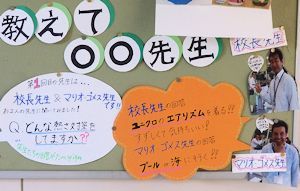 教えて
〇〇先生
第1回目の先生は…
校長先生 & マリオ ゴメス先生
です!!
Q どんな熱さ対策を
してますか??
校長先生の回答
ユニクロの エアリズムを着る!!
すずしくて気持ちいい!
マリオ ゴメス先生の回答
プールか海に行く!!
校長先生
マリオ・ゴメス先生